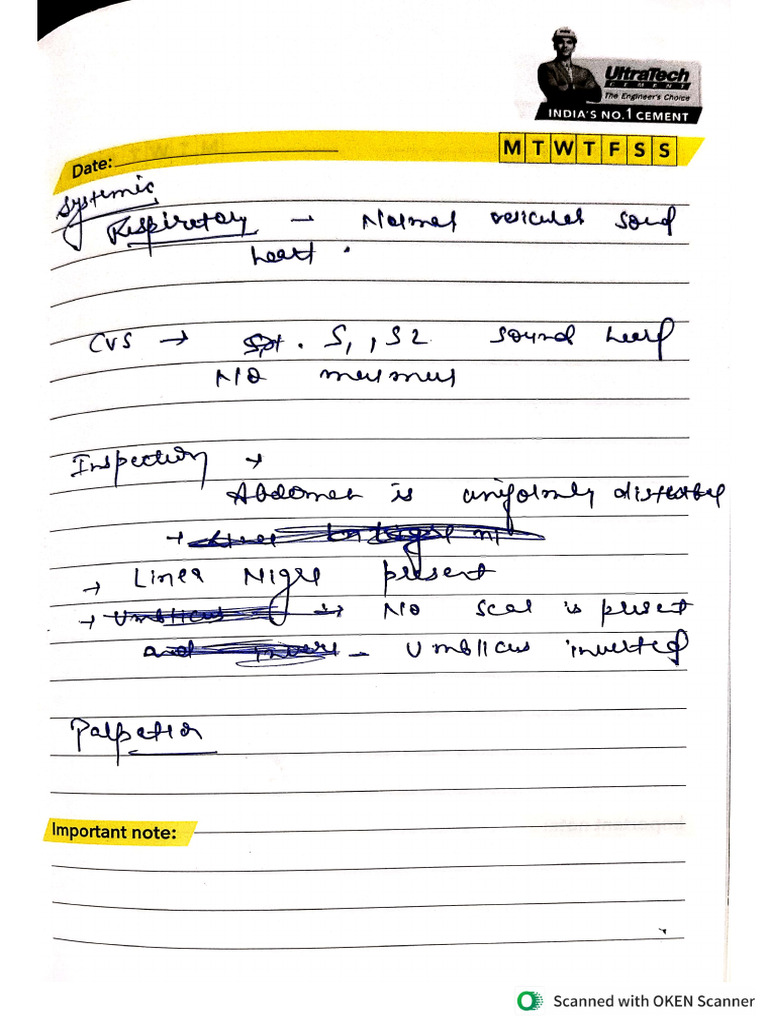 UltraTech
CEMENT
The Engineer's Choice
INDIA'S NO.1 CEMENT
Date: M T W T F S S
Systemic
Respiratory - Normal vesicular sound
heart.
CVS → S1, S2 sound heard
NO murmur
Inspection →
Abdomen is uniformly distended
→ Linea Nigra present
→ NO scar is present
- Umblicus inverted
Palpation
Important note:
Scanned with OKEN Scanner